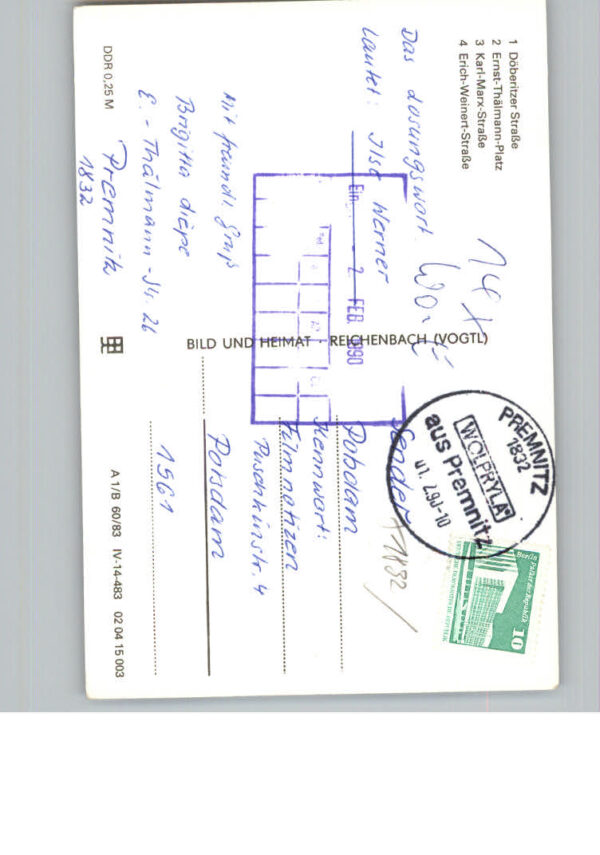 1 Döberitzer Straße
2 Ernst-Thälmann-Platz
3 Karl-Marx-Straße
4 Erich-Weinert-Straße
14 x
Wort
Das Losungswort
lautet: Ilse Werner
Mit freundl. Gruß
Brigitta
E.-Thälmann-Str. 26
Premnitz
1832
DDR 0,25 M
Ein.
2 FEB. 1990
BILD UND HEIMAT · REICHENBACH (VOGTL)
PREMNITZ
1832
WOLPRYLA
aus Premnitz
01.2.90-10
Berlin Palast der Republik
10
Sender
Potsdam
Kennwort:
Filmnotizen
Puschkinstr. 4
Potsdam
1561
1832
A 1/B 60/83 IV-14-483 02 04 15 003